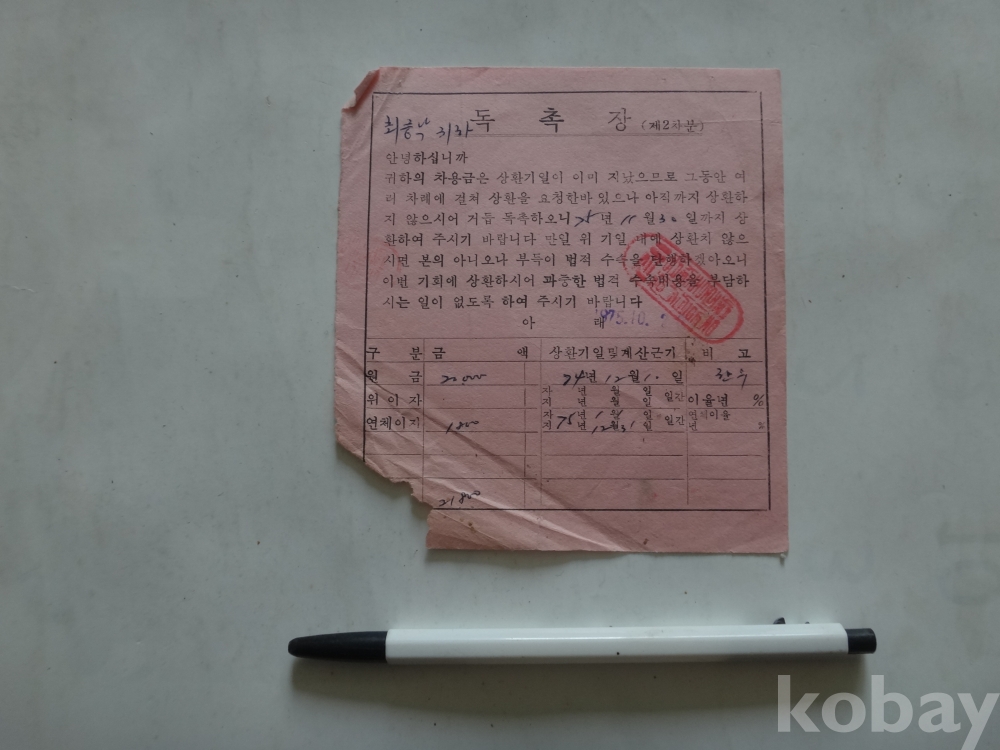 독 촉 장 (제2차분)
귀하
안녕하십니까
귀하의 차용금은 상환기일이 이미 지났으므로 그동안 여
러 차례에 걸쳐 상환을 요청한바 있으나 아직까지 상환하
지 않으시어 거듭 독촉하오니 75년 11월 30일까지 상
환하여 주시기 바랍니다 만일 위 기일 내에 상환치 않으
시면 본의 아니오나 부득이 법적 수속을 단행하겠아오니
이번 기회에 상환하시어 과중한 법적 수속비용을 부담하
시는 일이 없도록 하여 주시기 바랍니다
아 래
975.10.
구 분 금 액 상환기일및계산근기 비 고
원 금 20,000 74년 12월 10일 한우
위이자 자 년 월 일 지 년 월 일 일간 이율년 %
연체이자 1,800 자 75년 1월 1일 지 년 12월 31일 일간 연체이율 년 %
21,800
kobay